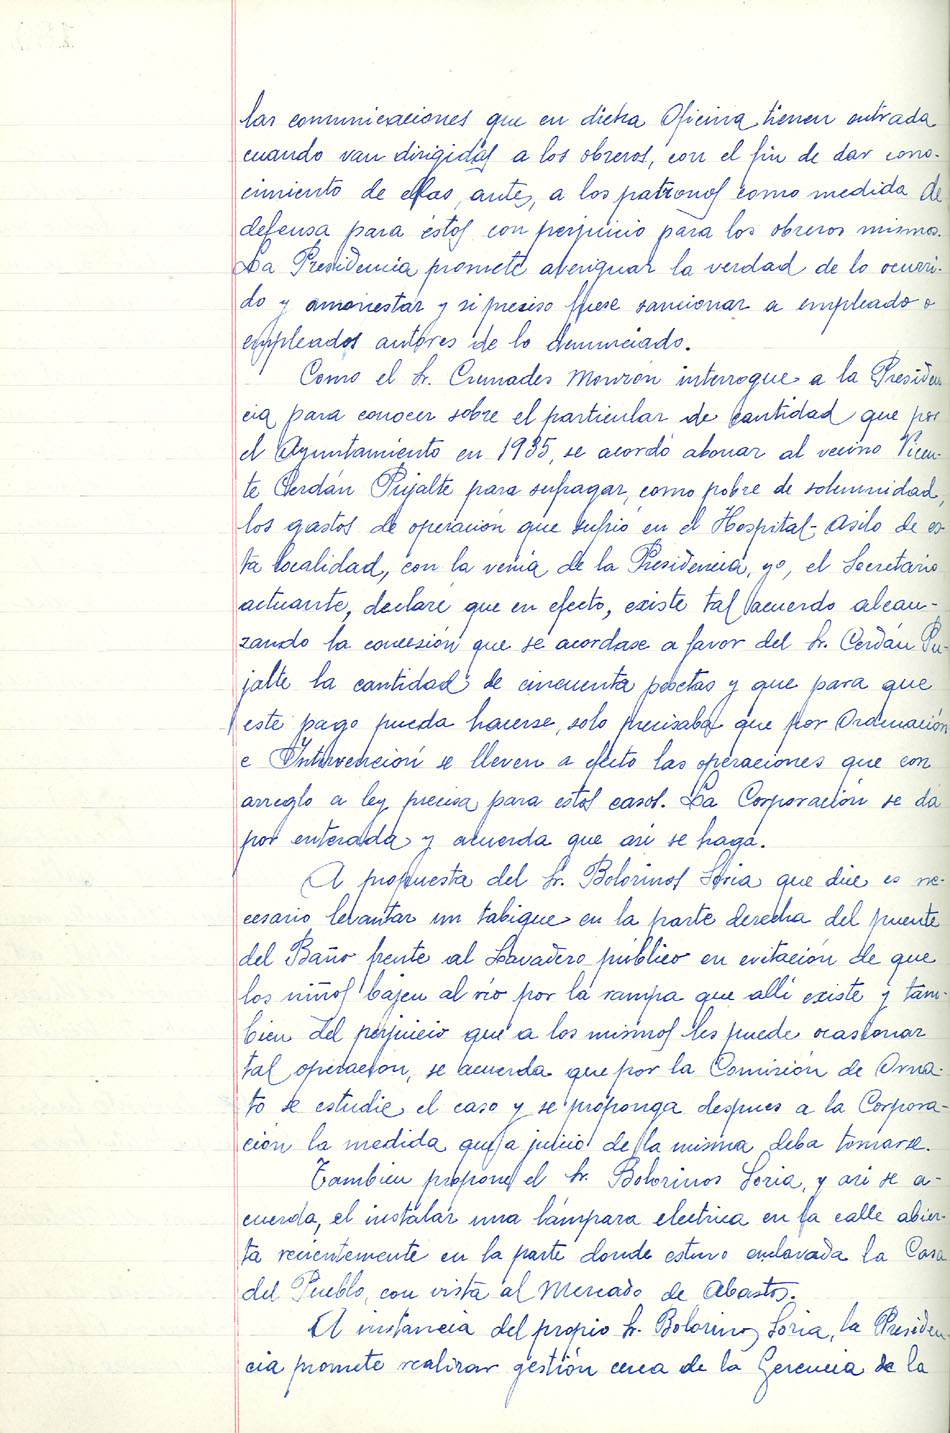 las comunicaciones que en dicha Oficina tienen entrada
cuando van dirigidas a los obreros, con el fin de dar cono-
cimiento de ellas, antes, a los patronos como medida de
defensa para éstos con perjuicio para los obreros mismos.
La Presidencia promete averiguar la verdad de lo ocurri-
do y amonestar y si preciso fuese sancionar a empleado o
empleados autores de lo denunciado.
Como el Sr. Cremades Monzón interrogue a la Presiden
cia para conocer sobre el particular de cantidad que por
el Ayuntamiento en 1935, se acordó abonar al vecino Vicen-
te Cerdán Pujalte para sufragar, como pobre de solemnidad,
los gastos de operación que sufrió en el Hospital-Asilo de és-
ta localidad, con la venia de la Presidencia, yo, el Secretario
actuante, declaré que en efecto, existe tal acuerdo alcan-
zando la concesión que se acordase a favor del Sr. Cerdán Pu-
jalte la cantidad de cincuenta pesetas y que para que
este pago pueda hacerse, solo precisaba que por Ordenación
e Intervención se lleven a efecto las operaciones que con
arreglo a ley precisa para estos casos. La Corporación se da
por enterada y acuerda que asi se haga.
A propuesta del Sr. Bolorinos Soria que dice es ne-
cesario levantar un tabique en la parte derecha del puente
del Baño frente al Lavadero público en evitación de que
los niños bajen al río por la rampa que allí existe y tam-
bien del perjuicio que a los mismos les puede ocasionar
tal operacion, se acuerda que por la Comisión de Orna-
to se estudie el caso y se proponga despues a la Corpora-
ción la medida que a juicio de la misma deba tomarse.
Tambien propone el Sr. Bolorinos Soria, y asi se a-
cuerda, el instalar una lámpara electrica en la calle abier-
ta recientemente en la parte donde estuvo enclavada la Casa
del Pueblo, con vista al Mercado de Abastos.
A instancia del propio Sr. Bolorinos Soria, la Presiden-
cia promete realizar gestión cerca de la Gerencia de la